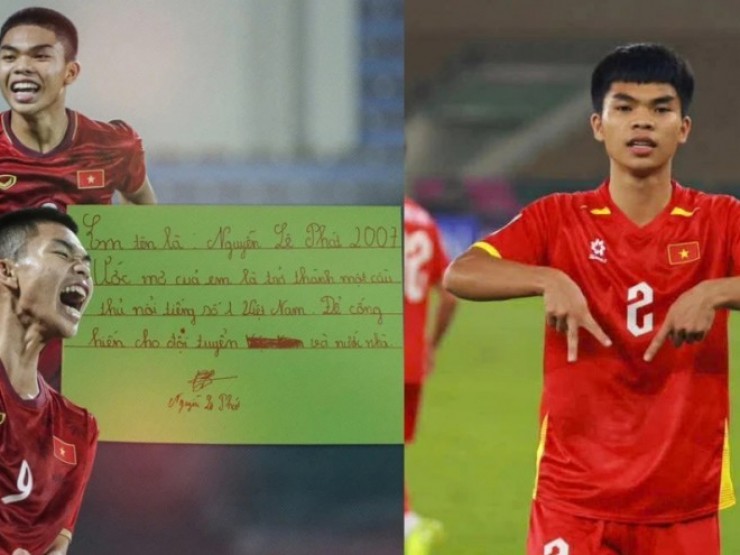 Em tên là : Nguyễn Lê Phát 2007
Ước mơ của em là trở thành một cầu
thủ nổi tiếng số 1 Việt Nam. Để cống
hiến cho đội tuyển và nước nhà
Nguyễn Lê Phát
9
2